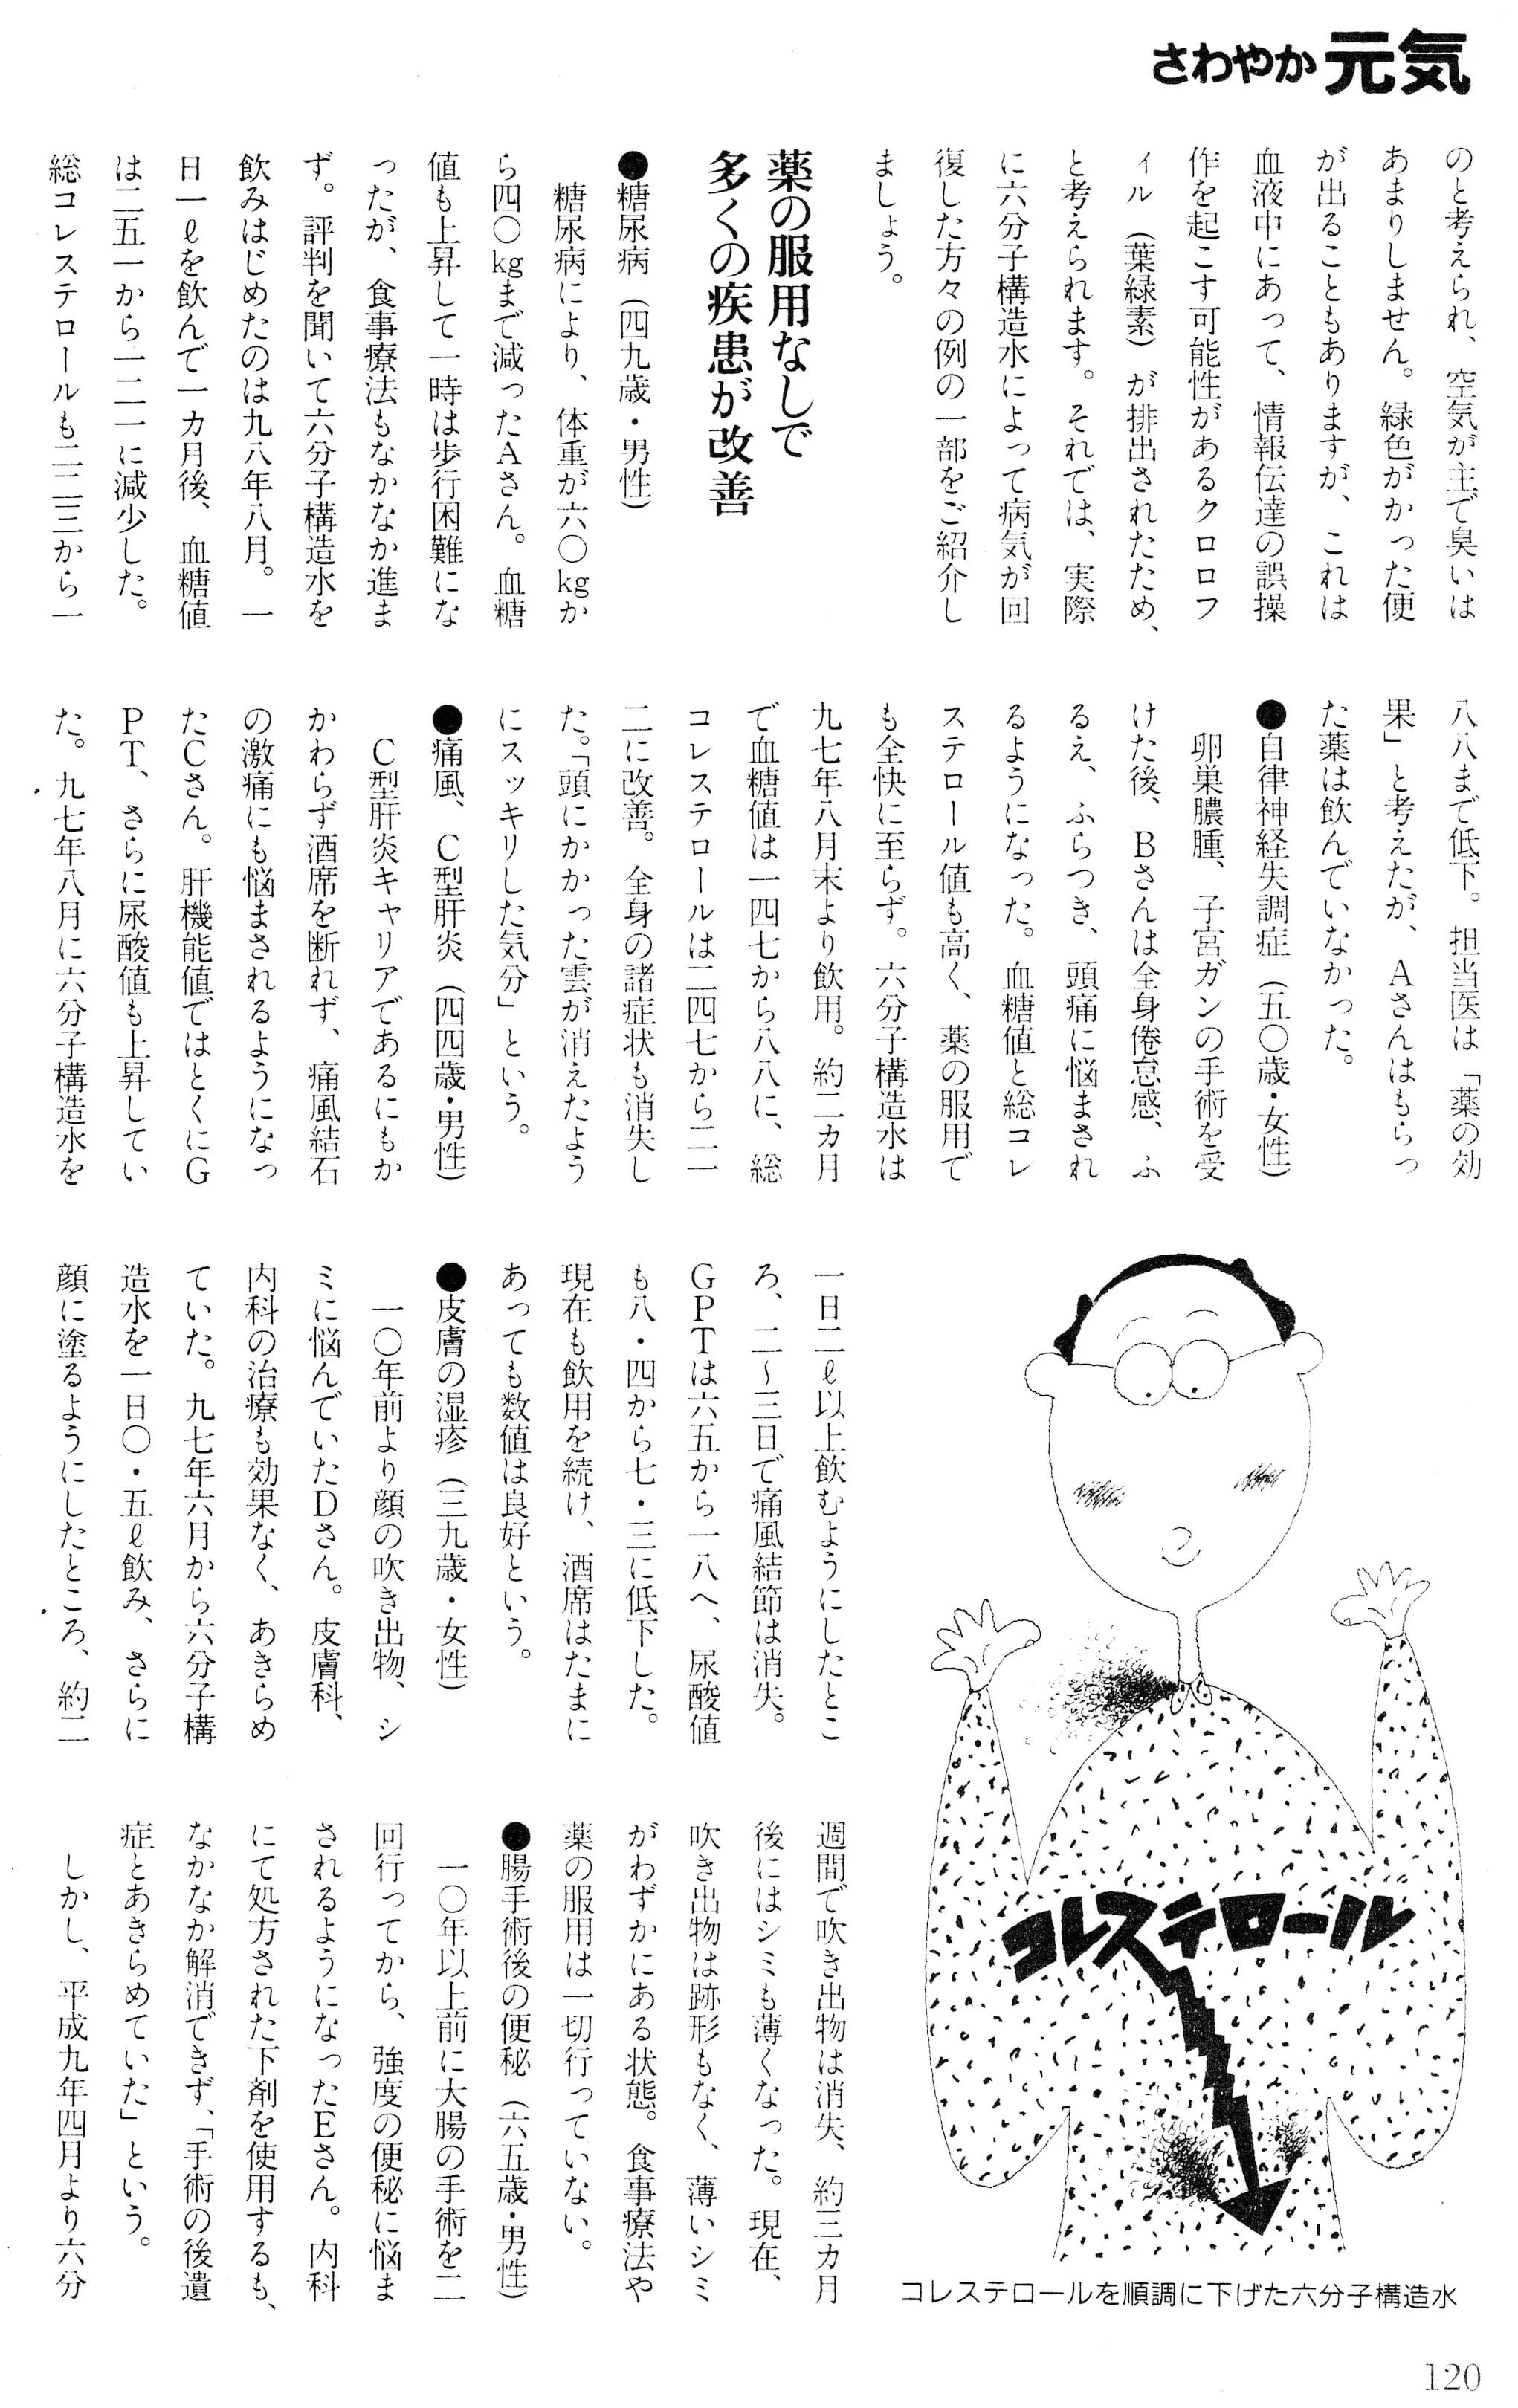 さわやか元気
のと考えられ、空気が主で臭いは
あまりしません。緑色がかった便
が出ることもありますが、これは
血液中にあって、情報伝達の誤操
作を起こす可能性があるクロロフ
ィル（葉緑素）が排出されたため、
と考えられます。それでは、実際
に六分子構造水によって病気が回
復した方々の例の一部をご紹介し
ましょう。
薬の服用なしで
多くの疾患が改善
●糖尿病（四九歳・男性）
糖尿病により、体重が六〇kgか
ら四〇kgまで減ったAさん。血糖
値も上昇して一時は歩行困難にな
ったが、食事療法もなかなか進ま
ず。評判を聞いて六分子構造水を
飲みはじめたのは九八年八月。一
日一ℓを飲んで一カ月後、血糖値
は二五一から一二一に減少した。
総コレステロールも二二三から一
八八まで低下。担当医は「薬の効
果」と考えたが、Aさんはもらっ
た薬は飲んでいなかった。
●自律神経失調症（五〇歳・女性）
卵巣膿腫、子宮ガンの手術を受
けた後、Bさんは全身倦怠感、ふ
るえ、ふらつき、頭痛に悩まされ
るようになった。血糖値と総コレ
ステロール値も高く、薬の服用で
も全快に至らず。六分子構造水は
九七年八月末より飲用。約二カ月
で血糖値は一四七から八八に、総
コレステロールは二四七から二一
二に改善。全身の諸症状も消失し
た。「頭にかかった雲が消えたよう
にスッキリした気分」という。
●痛風、C型肝炎（四四歳・男性）
C型肝炎キャリアであるにもか
かわらず酒席を断れず、痛風結石
の激痛にも悩まされるようになっ
たCさん。肝機能値ではとくにG
PT、さらに尿酸値も上昇してい
た。九七年八月に六分子構造水を
一日二ℓ以上飲むようにしたとこ
ろ、二〜三日で痛風結節は消失。
GPTは六五から一八へ、尿酸値
も八・四から七・三に低下した。
現在も飲用を続け、酒席はたまに
あっても数値は良好という。
●皮膚の湿疹（三九歳・女性）
一〇年前より顔の吹き出物、シ
ミに悩んでいたDさん。皮膚科、
内科の治療も効果なく、あきらめ
ていた。九七年六月から六分子構
造水を一日〇・五ℓ飲み、さらに
顔に塗るようにしたところ、約二
週間で吹き出物は消失、約三カ月
後にはシミも薄くなった。現在、
吹き出物は跡形もなく、薄いシミ
がわずかにある状態。食事療法や
薬の服用は一切行っていない。
●腸手術後の便秘（六五歳・男性）
一〇年以上前に大腸の手術を二
回行ってから、強度の便秘に悩ま
されるようになったEさん。内科
にて処方された下剤を使用するも、
なかなか解消できず、「手術の後遺
症とあきらめていた」という。
しかし、平成九年四月より六分
コレステロール
コレステロールを順調に下げた六分子構造水
120